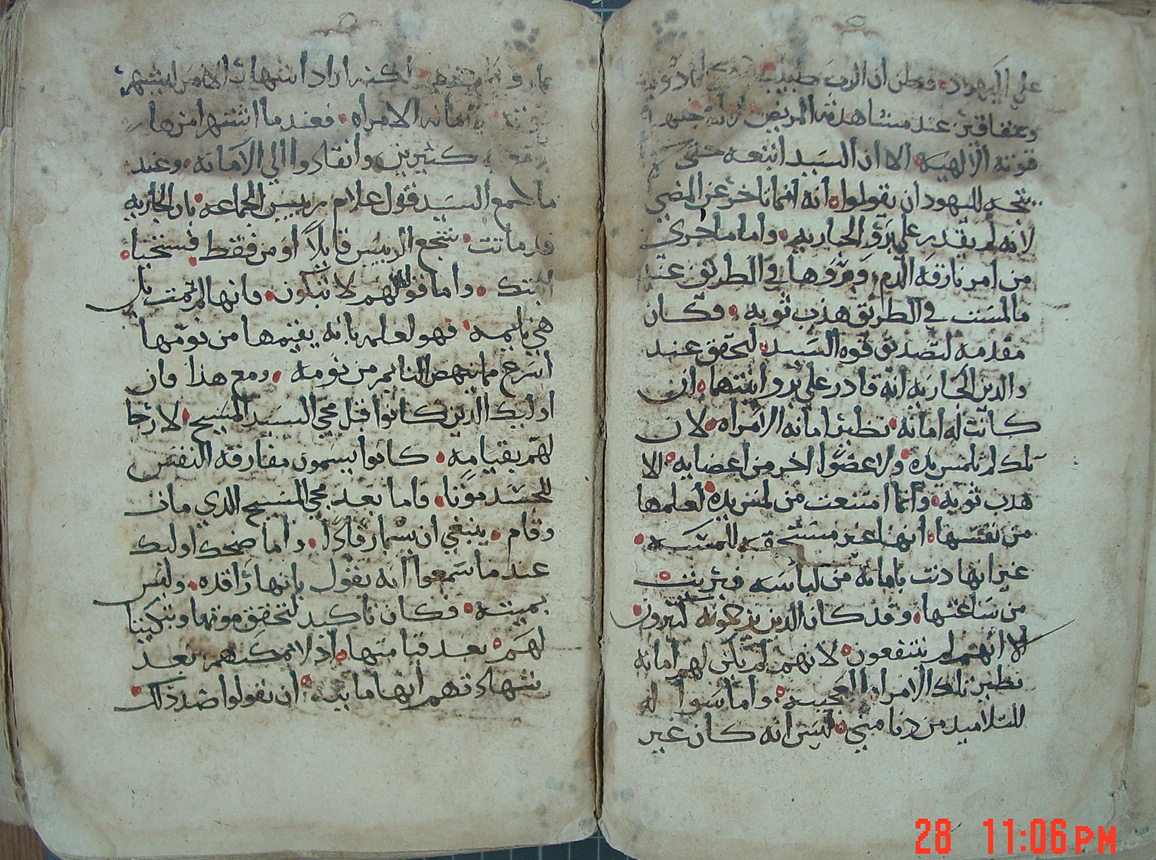 على اليهود، فظن ان الرب طبيب
وعقاقير عند مشاهدته المريض
قوته الالهية الا ان السيد اتبعه حتى
يتجه لليهود ان يقولوا انه انما تاخر عن المضي
لانه لم يقدر على برؤ الجاريه، واما ما جرى
من امر نازفة الدم ومرورها في الطريق عند
ما لمست في الطريق هدب ثوبه، فكان
مقدمه لتصديق قوة السيد، لتحقق عند
والدين الجاريه انه قادر على برؤ ابنتها، ان
كانت له امانه نظير امانه الامراه لان
تلك لم تلمس يده ولا عضوا اخر من اعضايه الا
هدب ثوبه، وانما امتنعت من لمس يده لعلمها
من نفسها انها غير مستحقه
غير انها دنت بامانه من لباسه وبريت
من ساعتها، وقد كان الذين يزحمونه كثيرون
الا انهم لم ينتفعون لانهم لم يكن لهم امانه
نظير تلك الامراه العجيبه، واما سوا له
للتلاميذ من دنا مني ليس انه كان غير
لكنه اراد اشهار الامر ليشهر
امانه الامراه، فعندما اشتهر امرها
كثيرين وانقادوا الى الامانه، وعند
ما سمع السيد قول غلام رييس الجماعه بان الجاريه
قد ماتت، شجع الرييس قايلا اومن فقط فستحيا
ابنتك، واما قوله لهم لا تبكون فانها لم تمت بل
هي نايمه، فهو لعلمه بانه يقيمها من نومها
اسرع مما ينهض النايم من نومه، ومع هذا فان
اوليك الذين كانوا قبل مجي السيد المسيح لا رجا
لهم بقيامه، كانوا يسمون مفارقة النفس
للجسد موتا، فاما بعد مجي المسيح الذي مات
وقام، ينبغي ان يسما رقادا، واما ضحك اوليك
عندما سمعوا انه يقول بانها راقده، وليس
بميته، فكان تاكيد لتحقق موتها وتبكيتا
لهم بعد قيامتها، اذ لا يمكنهم بعد
شهادتهم انها مايته، ان يقولوا ضد ذلك
28 11:06 PM